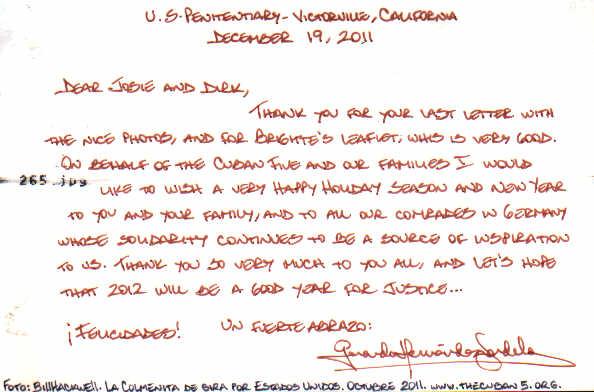 U.S. PENITENTIARY - VICTORVILLE, CALIFORNIA
DECEMBER 19, 2011
DEAR JOSIE AND DIRK,
THANK YOU FOR YOUR LAST LETTER WITH
THE NICE PHOTOS, AND FOR BRIGITTE'S LEAFLET, WHIS IS VERY GOOD.
ON BEHALF OF THE CUBAN FIVE AND OUR FAMILIES I WOULD
265.jpg
LIKE TO WISH A VERY HAPPY HOLIDAY SEASON AND NEW YEAR
TO YOU AND YOUR FAMILY, AND TO ALL OUR COMRADES IN GERMANY
WHOSE SOLIDARITY CONTINUES TO BE A SOURCE OF INSPIRATION
TO US. THANK YOU SO VERY MUCH TO YOU ALL, AND LET'S HOPE
THAT 2012 WILL BE A GOOD YEAR FOR JUSTICE...
¡FELICIDADES! UN FUERTE ABRAZO:
Gerardo Hernández Nordelo
FOTO: Bill HACKWELL. LA COLMENITA DE GIRA POR ESTADOS UNIDOS. OCTUBRE 2011. WWW.THECUBAN5.ORG.